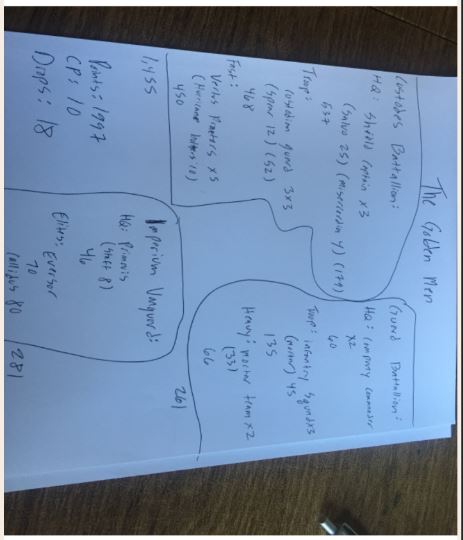 The Golden Men
Custodes Battallion:
HQ: Shield Captin x3
(Salvo 25) (misericordia 4) (179)
537
Troop:
Custodian guard 3x3
(Spear 12) (52)
468
Fast:
Vertus Praetors x5
(Hurricane Bolters 10)
450
1,455
Guard Battallion:
HQ: Company Commander
x2
60
Troop: infantry Squad x3
(mortar) 45
135
Heavy: mortar team x2
(33)
66
261
Imperium Vanguard:
HQ: Primaris
(Staff 8)
46
Elites: Eversor
70
Callidus 80
281
Points = 1997
CP: 10
Drops: 18